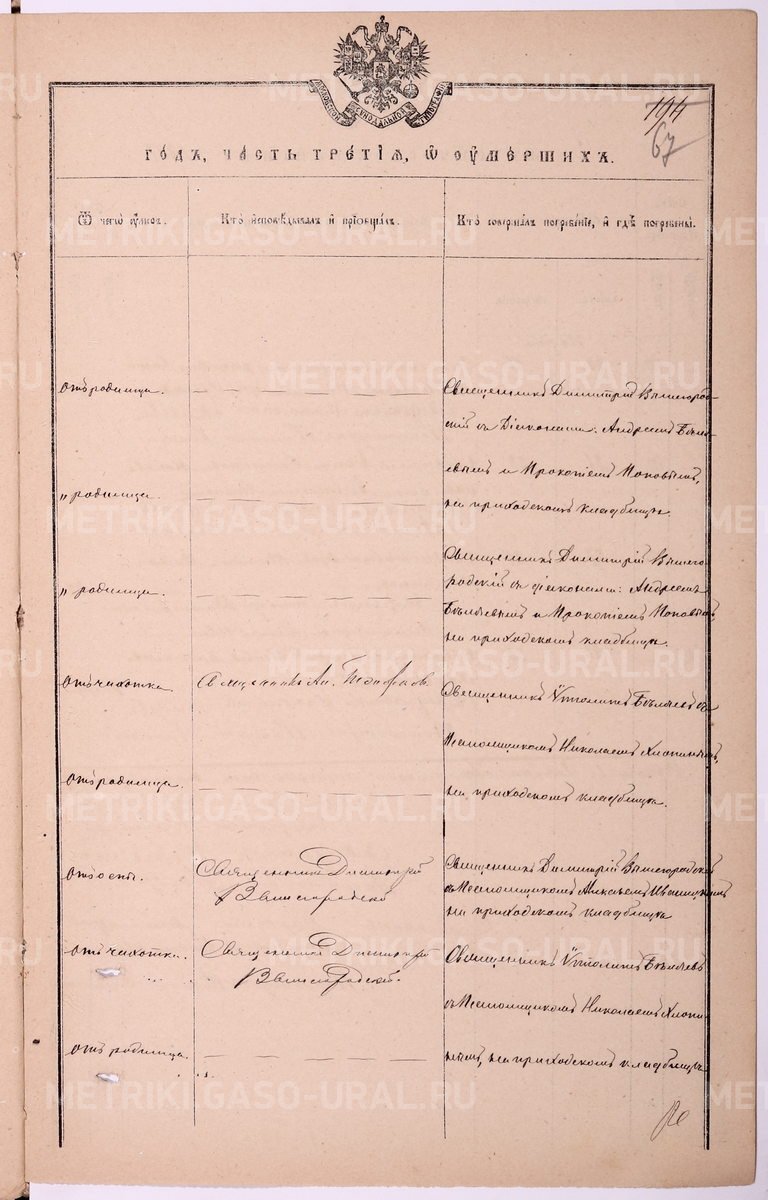 МОСКОВСКОЙ СѴНОДАЛЬНОЙ ТИПОГРАФІИ
194
67
ГОДЪ, ЧАСТЬ ТРЕТІѦ, Ѿ ОУМЕРШИХЪ.
Ѿ чегѡ оумеръ.
Кто исповѣдывалъ и пріобщалъ.
Кто совершалъ погребеніе, и гдѣ погребены.
отъ родимца.
Священникъ Димитрій Вышегород-
скій съ Діаконами: Андреемъ Бѣля-
евымъ и Прокопіемъ Поповымъ,
на приходскомъ кладбищѣ.
„ родимца.
Священникъ Димитрій Вышего-
родскій съ діаконами: Андреемъ
Бѣляевымъ и Прокопіемъ Поповымъ
на приходскомъ кладбищѣ.
„ родимца.
отъ чахотки
Священникъ Ап.
Священникъ Бѣляевъ съ
Псаломщикомъ Николаемъ Хлопинымъ,
на приходскомъ кладбищѣ.
отъ родимца.
отъ оспы.
Священникъ Димитрій
Вышегородскій
Священникъ Димитрій Вышегородскій
съ Псаломщикомъ
на приходскомъ кладбищѣ
отъ чахотки.
Священникъ Димитрій
Вышегородскій.
Священникъ Бѣляевъ
съ Псаломщикомъ Николаемъ Хлопи-
нымъ, на приходскомъ кладбищѣ
отъ родимца.
METRIKI.GASO-URAL.RU